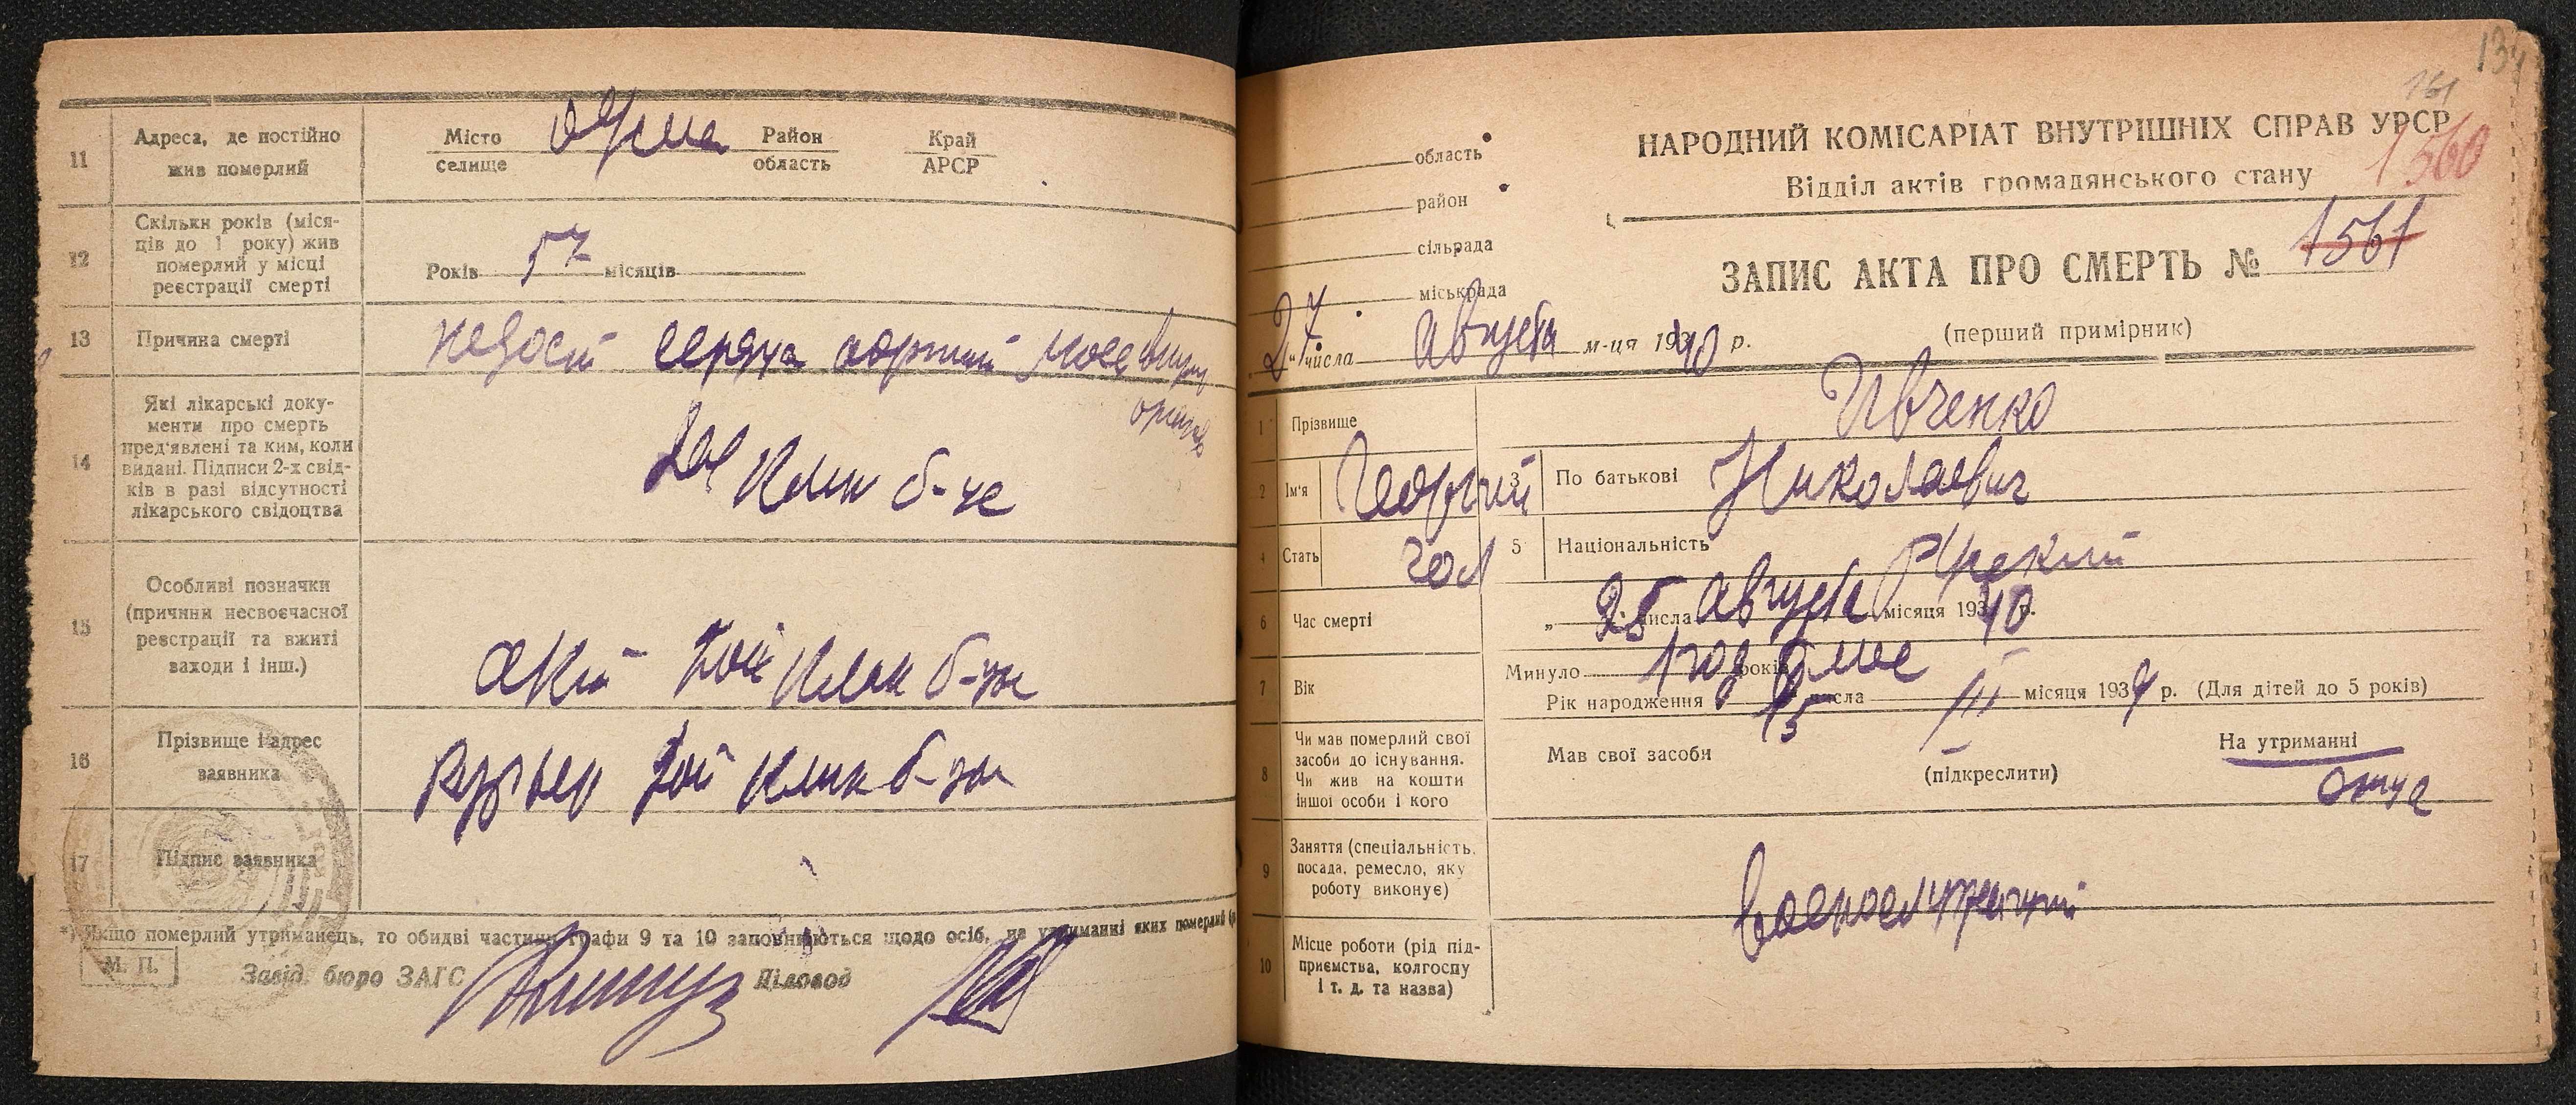 11 Адреса, де постійно жив померлий
Місто селище Район область Край АРСР
12 Скільки років (міся-
ців до 1 року) жив
померлий у місці
реєстрації смерті
Років 57 місяців
13 Причина смерті
сердца
14 Які лікарські доку-
менти про смерть
пред'явлені та ким, коли
видані. Підписи 2-х свід-
ків в разі відсутності
лікарського свідоцтва
Клин б-це
15 Особливі позначки
(причини несвоєчасної
реєстрації та вжиті
заходи і інш.)
Акт Клин б-це
16 Прізвище і адрес
заявника
Клин б-цы
17 Підпис заявника
*) Якщо померлий утриманець, то обидві частини графи 9 та 10 заповнюються щодо осіб, на утриманні яких померлий
М. П. Завід. бюро ЗАГС Діловод
134
161
НАРОДНИЙ КОМІСАРІАТ ВНУТРІШНІХ СПРАВ УРСР
1560
Відділ актів громадянського стану
область
район
сільрада
міськрада
ЗАПИС АКТА ПРО СМЕРТЬ № 1561
(перший примірник)
„27 числа Августа м-ця 1940 р.
1 Прізвище Ивченко
2 Ім'я Георгий 3 По батькові Николаевич
4 Стать чол 5 Національність Русский
6 Час смерті „25 числа Августа місяця 1940 р.
7 Вік Минуло 1 год років мес
Рік народження 15 числа III місяця 1939 р. (Для дітей до 5 років)
8 Чи мав померлий свої
засоби до існування.
Чи жив на кошти
іншої особи і кого
Мав свої засоби (підкреслити) На утриманні
отца
9 Заняття (спеціальність,
посада, ремесло, яку
роботу виконує)
Военнослужащий
10 Місце роботи (рід під-
приємства, колгоспу
і т. д. та назва)